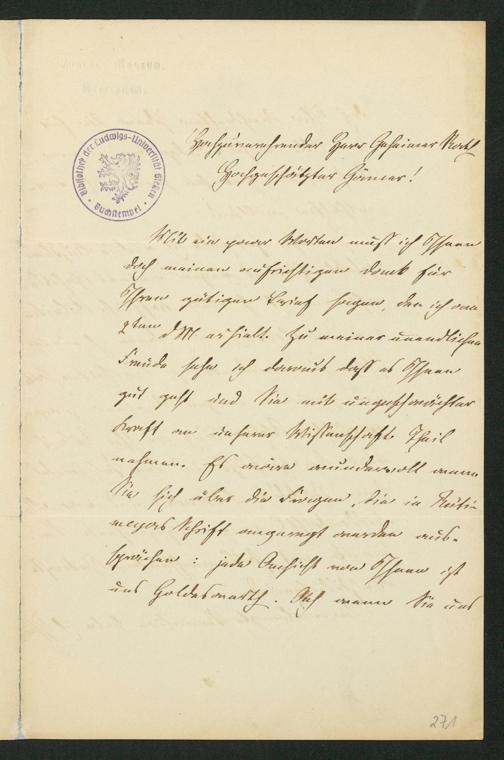 Bibliothek der Ludwigs-Universität Giessen
Buchstempel
Hochzuverehrender Herr Geheimer Rath
Hochgeschätzter Gönner!
Mit ein paar Worten muß ich Ihnen
doch meinen aufrichtigen Dank für
Ihren gütigen Brief sagen, den ich am
2ten d M erhielt. Zu meiner unendlichen
Freude sehe ich daraus daß es Ihnen
gut geht und Sie mit ungeschwächter
Kraft an unserer Wissenschaft Theil
nehmen. Es wäre wundervoll wenn
Sie sich über die Fragen, die in Rüti-
meyers Schrift angeregt werden aus-
sprächen: jede Ansicht von Ihnen ist
uns Goldeswerth. Ach wenn Sie uns
271